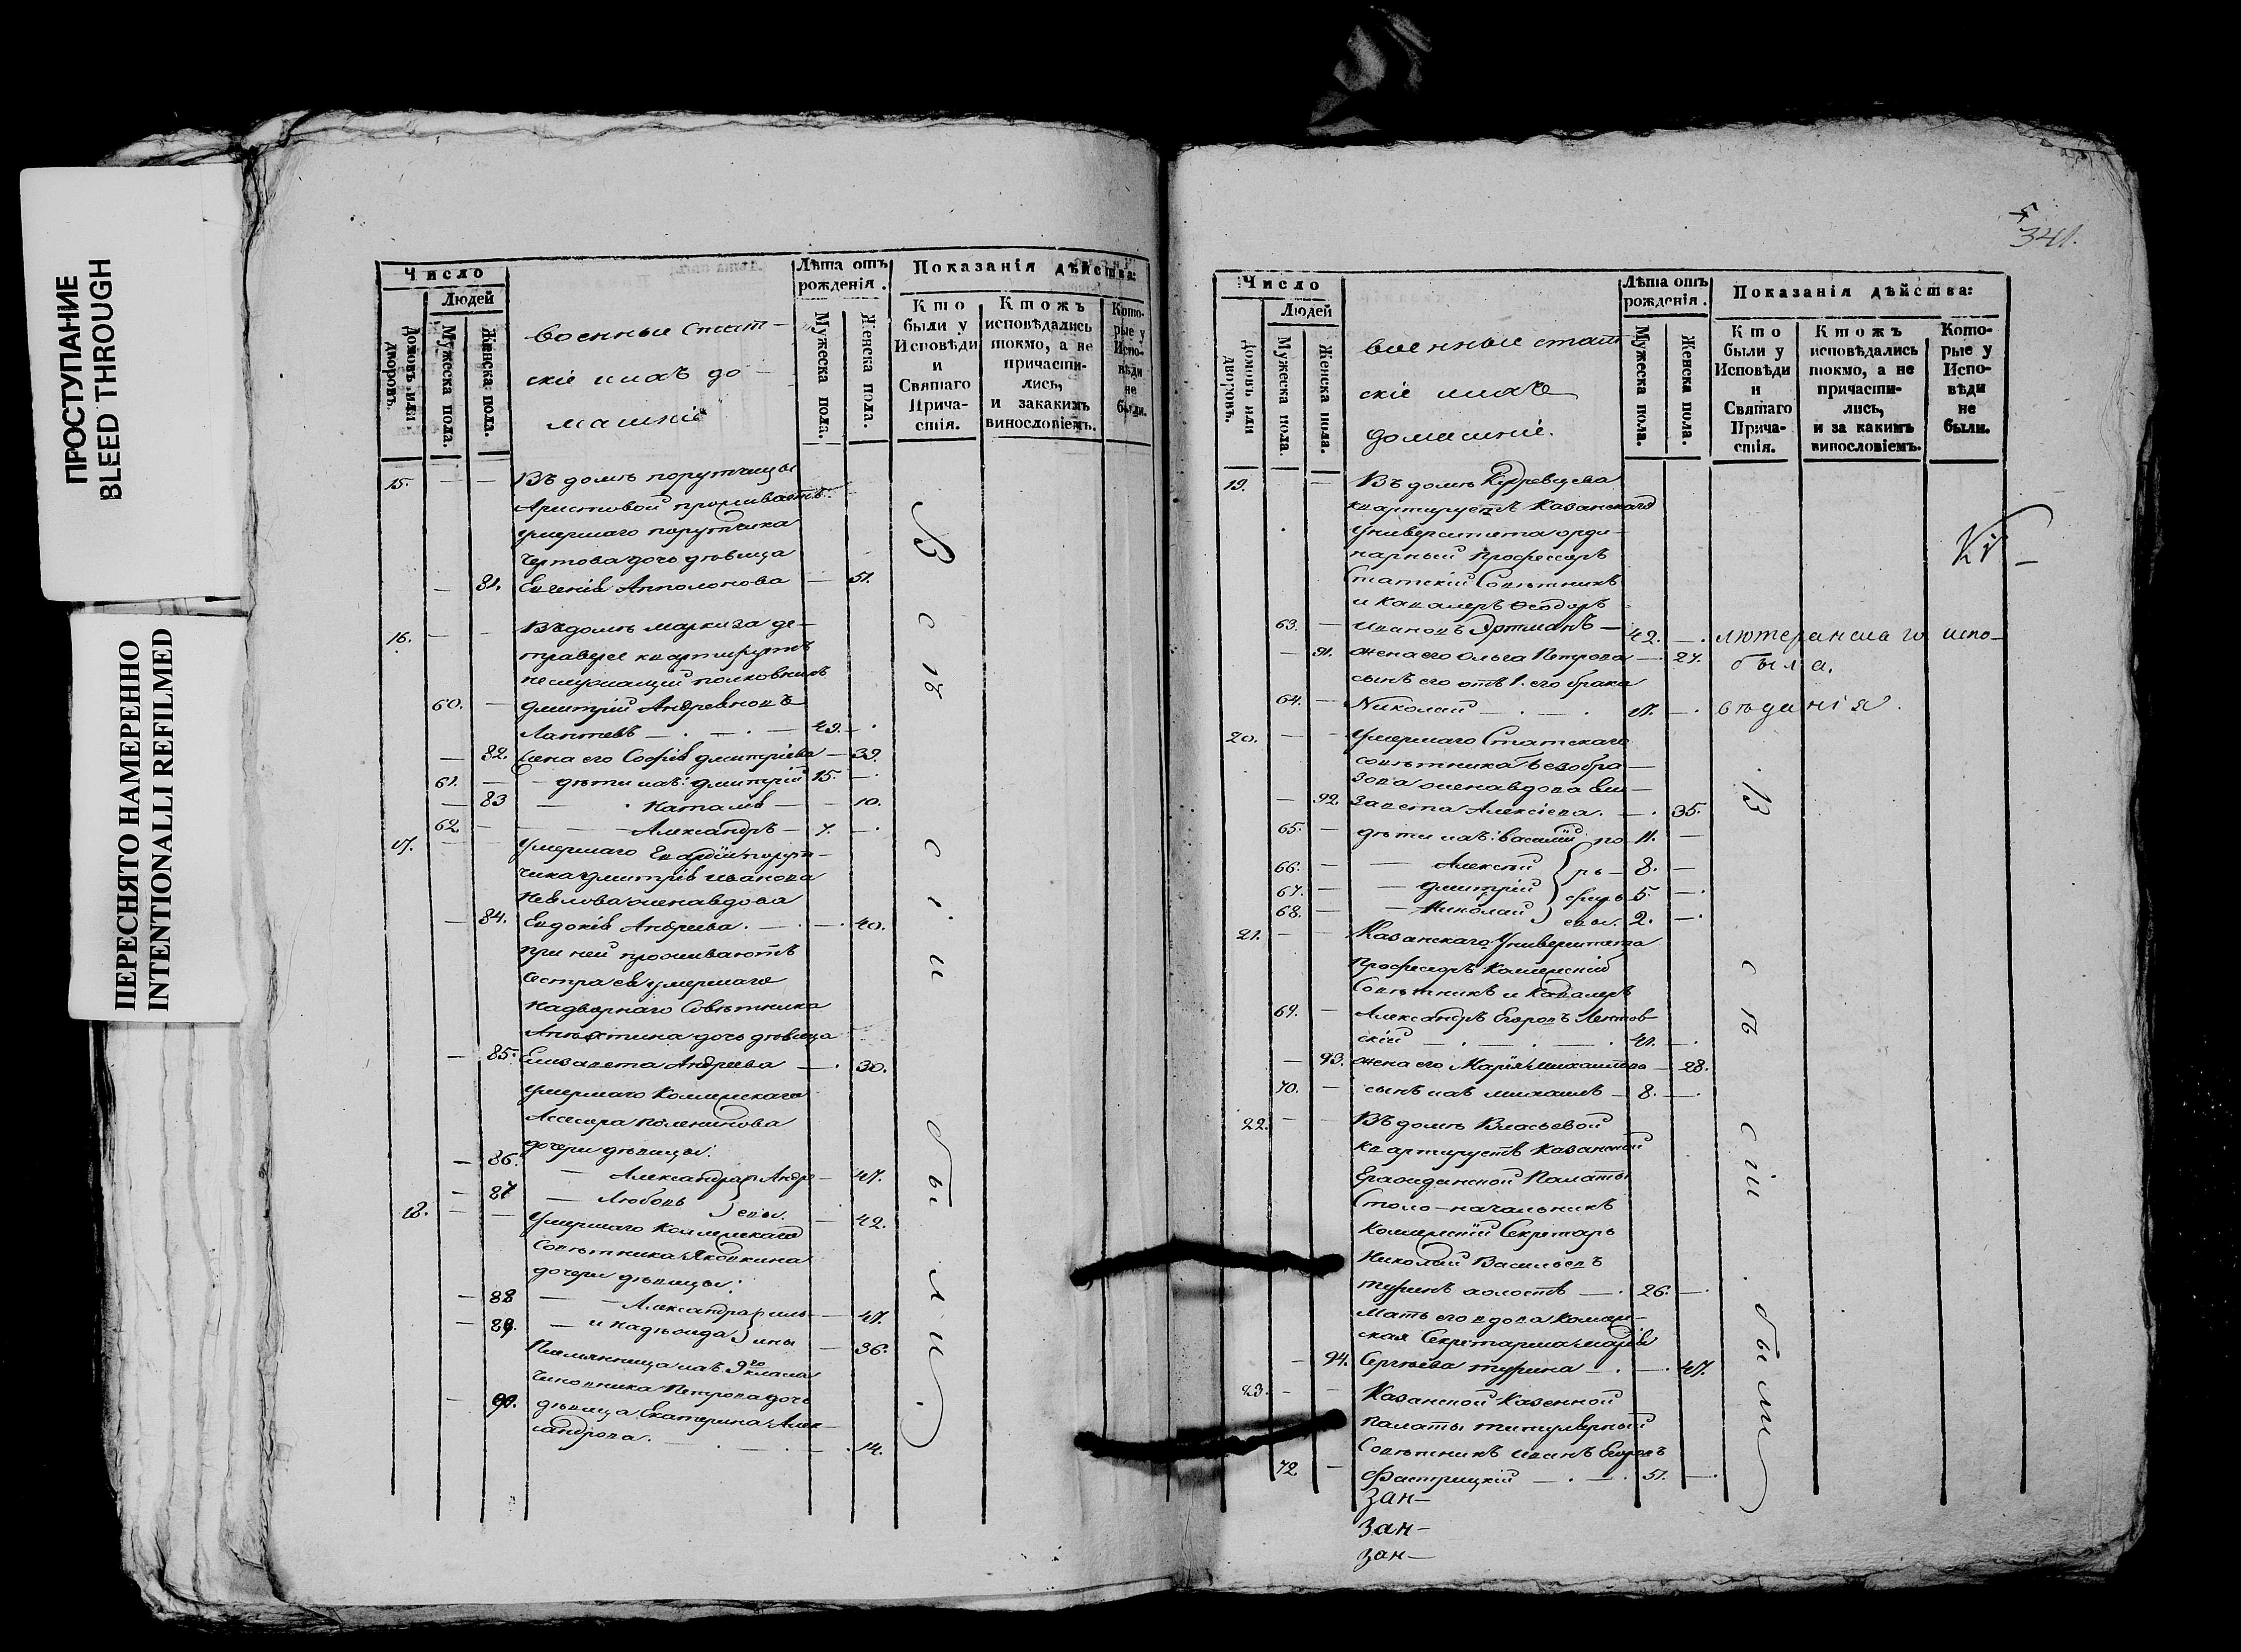 ПРОСТУПАНИЕ
BLEED THROUGH
ПЕРЕСНЯТО НАМЕРЕННО
INTENTIONALLI REFILMED
Число
Людей
домовъ или дворовъ.
Мужеска пола.
Женска пола.
военныи стат-
скіе и ихъ до-
машніе
Лѣта отъ рожденія.
Мужеска пола.
Женска пола.
Показанія дѣйства:
Кто были у Исповѣди и Святаго Причастія.
Ктожъ исповѣдались токмо, а не причастились, и закакимъ винословіемъ.
Которые у Исповѣди не были.
15. — — Въ домѣ порутчицы
Аристовой проживаетъ
умершаго порутчика
Чертова дочь дѣвица
— 81. Евгенія Апполонова — 51.
16. — — Въ домѣ маркиза де-
траверсе квартируетъ
неслужащій полковникъ
60. — Дмитрій Андреевичъ
Лаптевъ — . — . — 49. — .
— 82. жена его Софія Дмитріева — 39.
61. — — дѣти ихъ: Дмитрій 15. — .
— 83 — . Наталья — — 10.
62. — — Александръ — 7. — .
17. — — умершаго Гвардіи порут-
чика Дмитрія Иванова
жена вдова
— 84. Евдокія Андреева. — . — . 40.
при ней проживаютъ
сестра ея умершаго
надворнаго Совѣтника
дочь дѣвица
— 85. Елизавета Андреева — . 30.
умершаго Коллежскаго
Ассесора
дочери дѣвицы:
— 86. — Александра Андре — 47.
— 87 — Любовь евы. — 42.
18. — — умершаго Коллежскаго
Совѣтника Яковкина
дочери дѣвицы:
— 88 — — Александра иль- — 47.
— 89. — и Надѣжда ины — 36.
Племянница ихъ 9го класса
чиновника Петрова дочь
— 90. дѣвица Екатерина Алек-
сандрова. — . — . — . 14.
В с ѣ с і и б ы л и.
341.
Число
Людей
домовъ или дворовъ.
Мужеска пола
Женска пола.
военные стат
скіе и ихъ
домашніе.
Лѣта отъ рожденія.
Мужеска пола.
Женска пола.
Показанія дѣйства:
Кто были у Исповѣди и Святаго Причастія.
Ктожъ исповѣдались токмо, а не причастились, и за какимъ винословіемъ.
Которые у Исповѣди не были.
19. — Въ домѣ
квартируетъ Казанскаго
Университета орди-
нарный профессоръ
Статскій Совѣтникъ
и Кавалеръ Ѳеодоръ
63. — Ивановъ Эртманъ — 42. — . лютеранскаго испо-
— 91. жена его Ольга Петрова — 27. была.
сынъ его отъ 1. его брака
64. — Николай — . — . 17. — . вѣданія.
20. — — умершаго Статскаго
совѣтника Безобра-
зова жена вдова Ели-
— 92. завета Алексіева. — . 35.
65. — дѣти ихъ: Василій 11. —
66. — — Алексѣй 8. —
67. — — Дмитрій 5 — .
68. — — Николай 2. — .
21. — — Казанскаго Университета
Профессоръ Коллежскій
Совѣтникъ и Кавалеръ
69. — Александръ Егоровъ Лентов-
скій — . — . 41. — .
— 93. жена его Марія Михаилова — 28.
70. — сынъ ихъ Михаилъ — 8. — .
22. — — Въ домѣ Власьевой
квартируетъ Казанской
Гражданской Палаты
Столо-начальникъ
Коллежскій Секретарь
Николай Васильевъ
Туринъ холостъ — . 26. — .
мать его вдова Коллеж-
ская Секретарша Марія
— 94. Сергѣева Турина — . — . 47.
23. — — Казанской Казенной
Палаты титулярный
Совѣтникъ Иванъ Егоровъ
72 — Фастрицкій — . — . 51. — .
В с ѣ с і и б ы л и
зан-
зан-
зан-